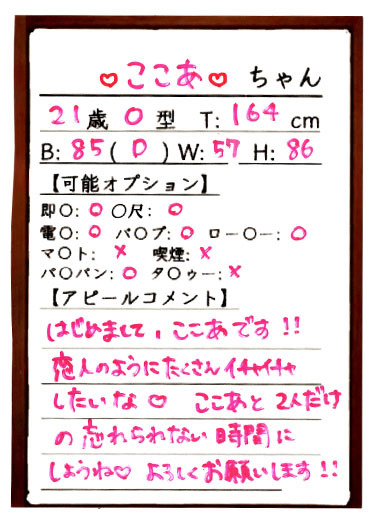 ♡ここあ♡ ちゃん
21歳 O型 T: 164cm
B: 85(D) W: 57 H: 86
【可能オプション】
即〇: ○ 〇尺: ○
電〇: ○ バ〇ブ: ○ ロー〇ー: ○
マ〇ト: × 喫煙: ×
パ〇パン: ○ タ〇ゥー: ×
【アピールコメント】
はじめまして、ここあです!!
恋人のようにたくさんイチャイチャ
したいな♡ ここあと2人だけ
の忘れられない時間に
しようね♡ よろしくお願いします!!